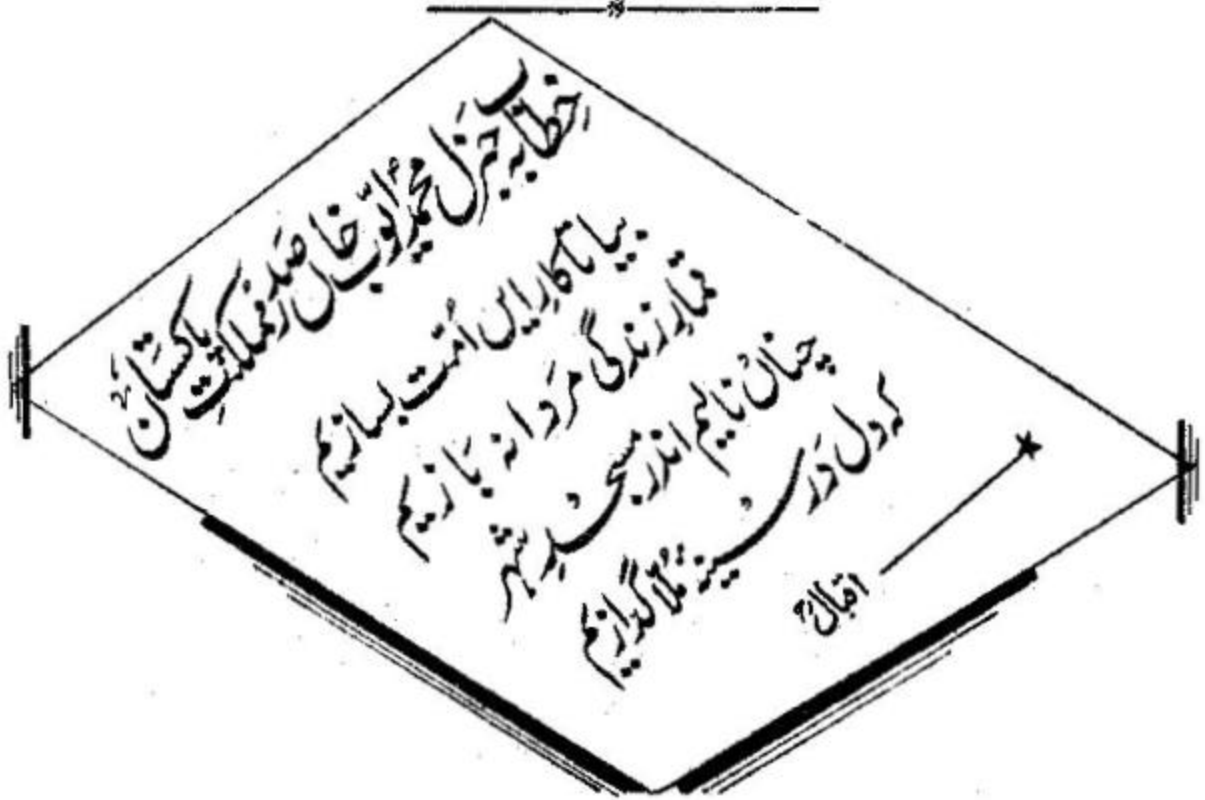 خطاب بہ جنرل محمد ایوب خاں صدر مملکتِ پاکستان
بیا تا کارِ ایں اُمّت بسازیم
قمارِ زندگی مَردانہ بازیم
چناں نالیم اندر مسجدِ شہر
کہ دل در سینۂ مُلّا گدازیم
اقبالؒ